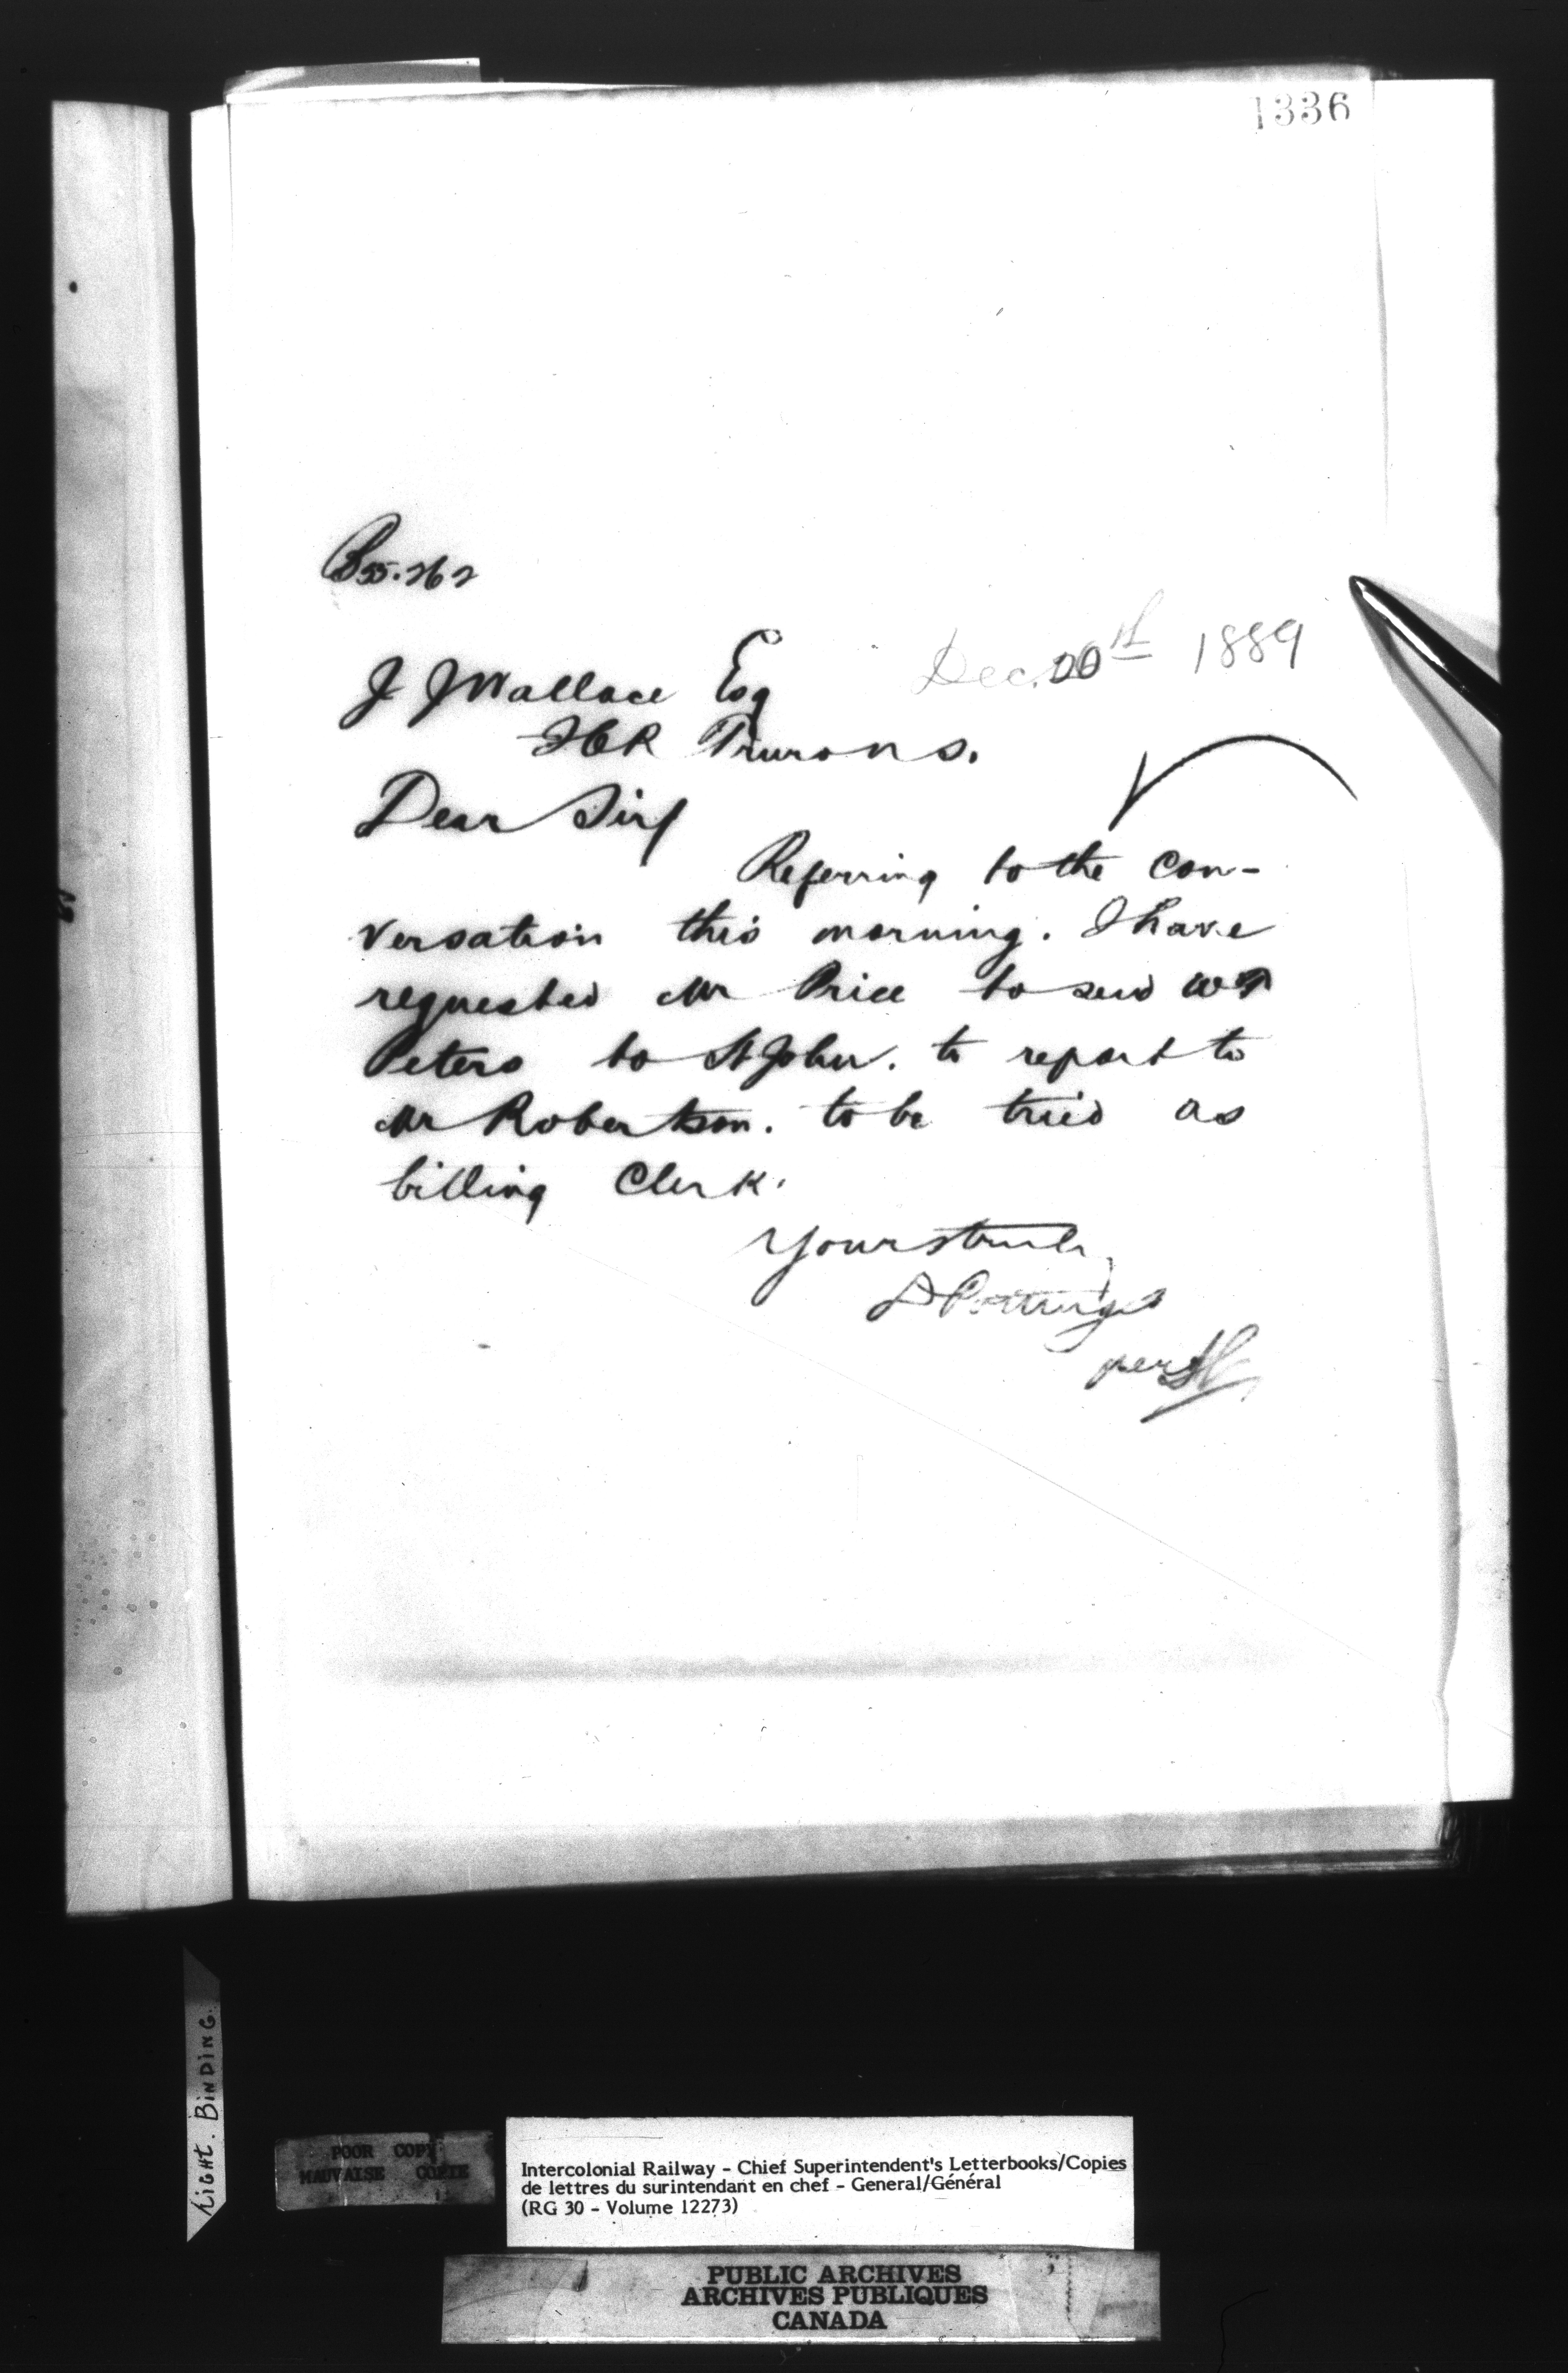 1336
B55.262
Dec. 20th 1889
J J Wallace Esq
ICR Truro N.S.
Dear Sir/
Referring to the con-
versation this morning. I have
requested Mr Price to send
Peters to St John. to report to
Mr Robertson. to be tried as
billing Clerk.
Yours truly
D Pottinger
per
LIGHT. BINDING.
POOR COPY
MAUVAISE COPIE
Intercolonial Railway - Chief Superintendent's Letterbooks/Copies
de lettres du surintendant en chef - General/Général
(RG 30 - Volume 12273)
PUBLIC ARCHIVES
ARCHIVES PUBLIQUES
CANADA